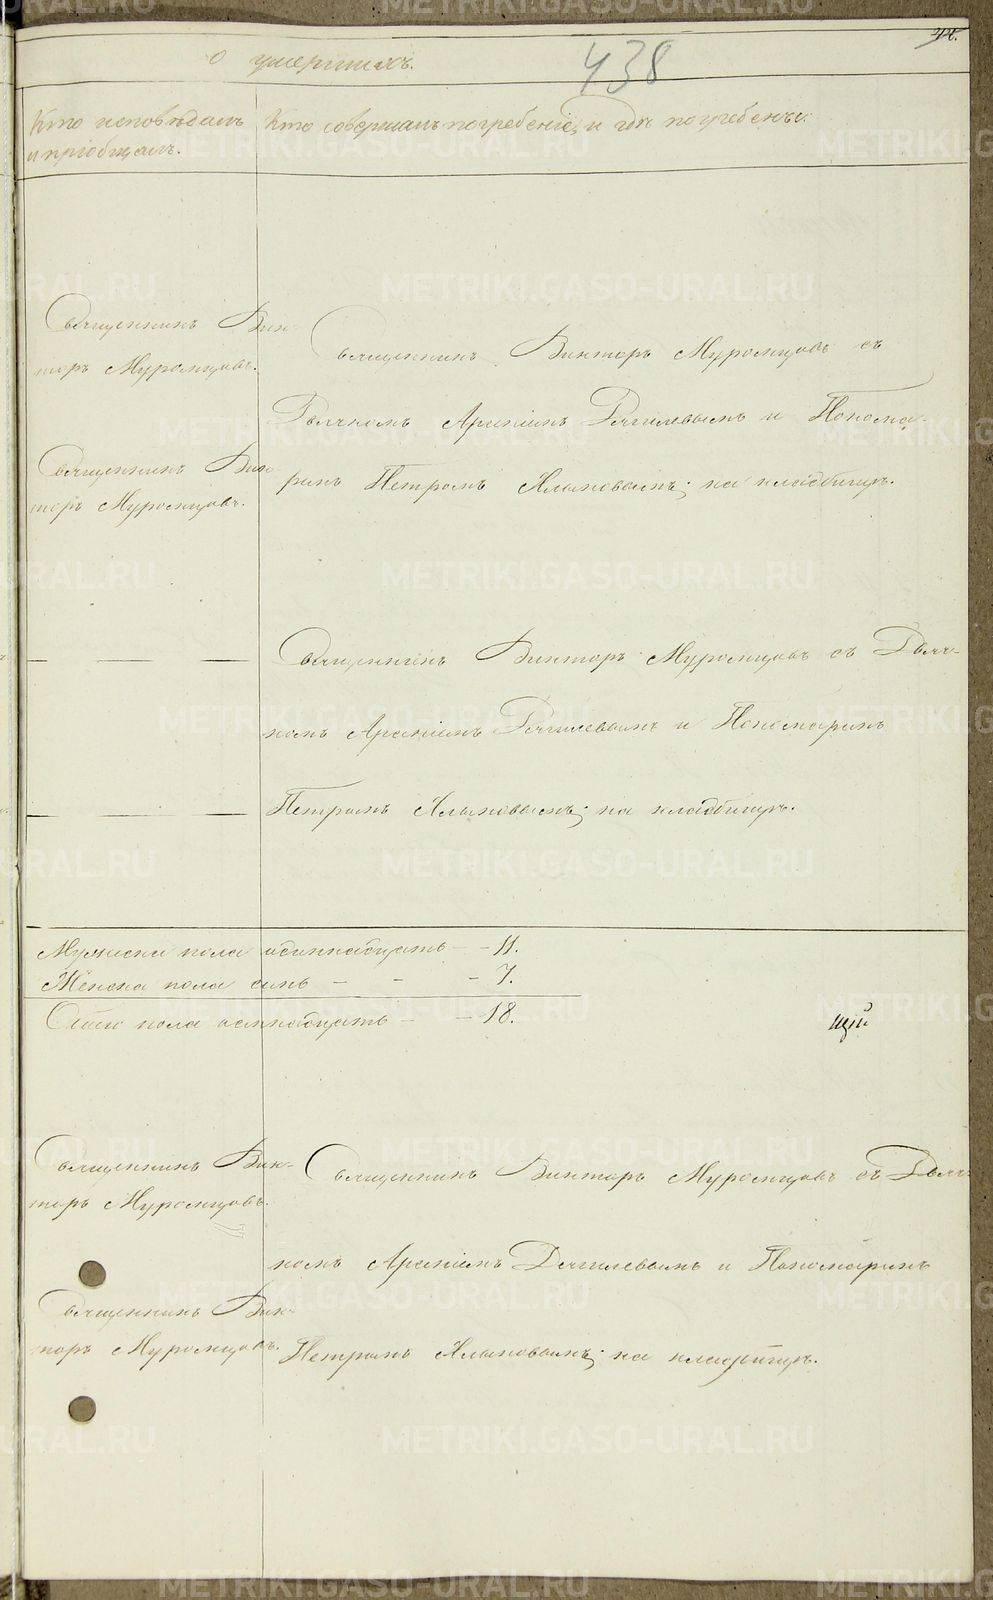 о умершихъ.
438
Кто исповѣдалъ
и пріобщалъ.
Кто совершалъ погребеніе, и гдѣ погребены.
Священникъ Вик-
торъ Муромцовъ.
Священникъ Вик-
торъ Муромцовъ.
Священникъ Викторъ Муромцовъ съ
Дьячкомъ Арсеніемъ и Понома-
ремъ Петромъ на кладбищѣ.
Священникъ Викторъ Муромцовъ съ Дьяч-
комъ Арсеніемъ и Пономаремъ
Петромъ на кладбищѣ.
Мужеска пола одиннадцать - - 11.
Женска пола семь - - - 7.
Обоего пола осмнадцать - - 18.
щій
Священникъ Вик-
торъ Муромцовъ.
Священникъ Вик-
торъ Муромцовъ.
Священникъ Викторъ Муромцовъ съ Дьяч-
комъ Арсеніемъ и Пономаремъ
Петромъ на кладбищѣ.
METRIKI.GASO-URAL.RU